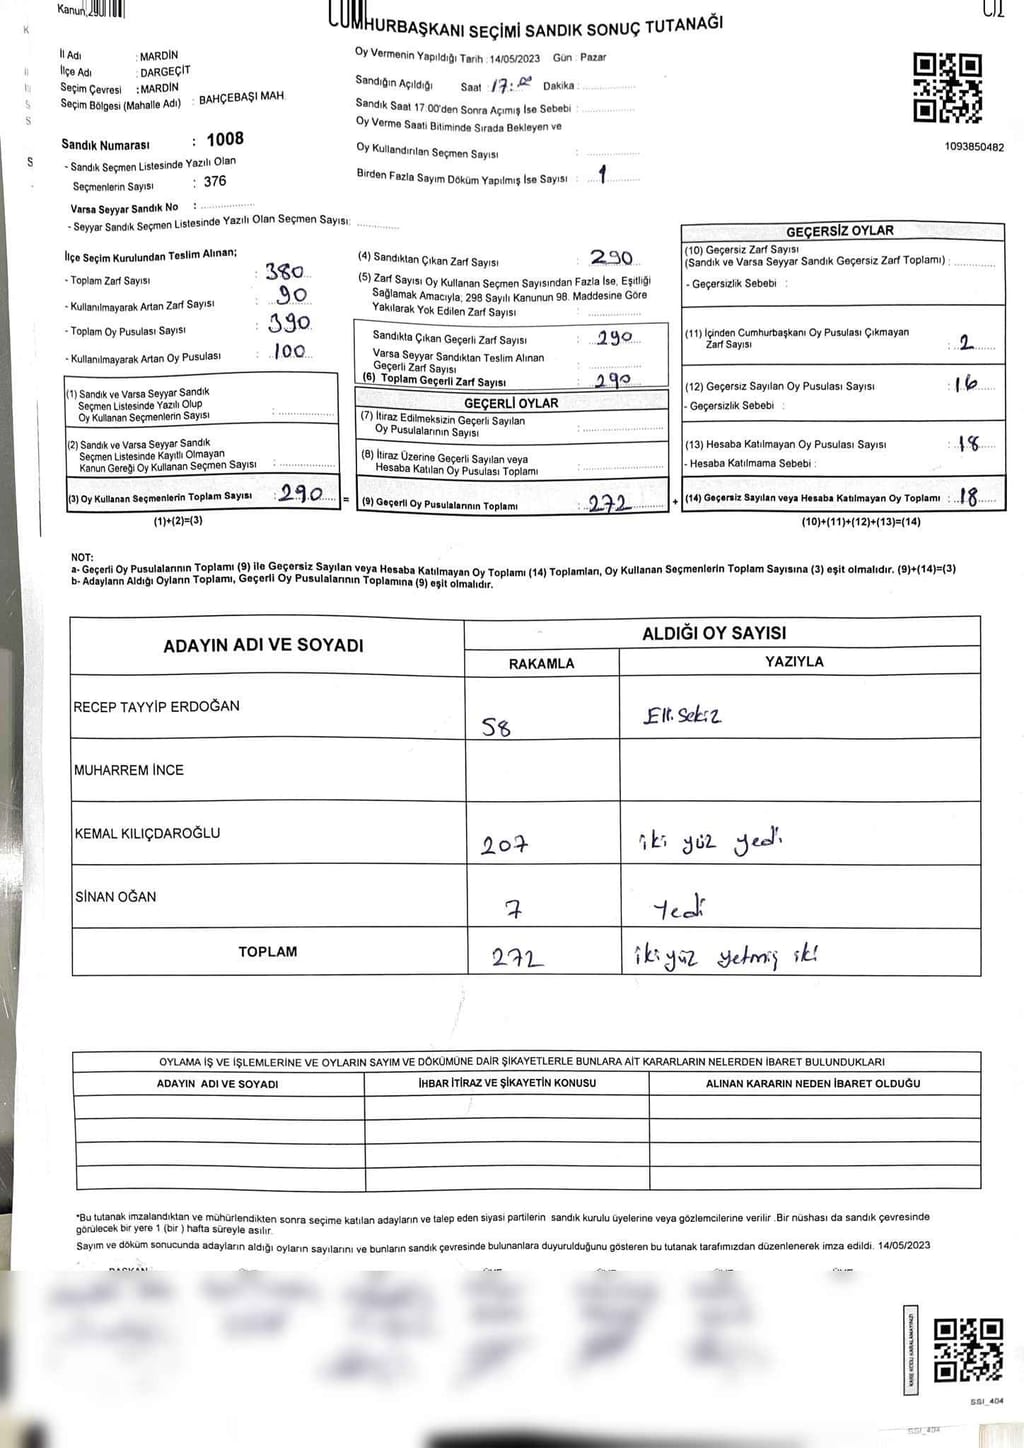 CUMHURBAŞKANI SEÇİMİ SANDIK SONUÇ TUTANAĞI
İl Adı : MARDİN
İlçe Adı : DARGEÇİT
Seçim Çevresi : MARDİN
Seçim Bölgesi (Mahalle Adı) : BAHÇEBAŞI MAH.
Sandık Numarası : 1008
- Sandık Seçmen Listesinde Yazılı Olan
Seçmenlerin Sayısı : 376
Varsa Seyyar Sandık No :
- Seyyar Sandık Seçmen Listesinde Yazılı Olan Seçmen Sayısı:
Oy Vermenin Yapıldığı Tarih : 14/05/2023 Gün : Pazar
Sandığın Açıldığı Saat : 17:00 Dakika :
Sandık Saat 17.00'den Sonra Açımış İse Sebebi :
Oy Verme Saati Bitiminde Sırada Bekleyen ve
Oy Kullandırılan Seçmen Sayısı :
Birden Fazla Sayım Döküm Yapılmış İse Sayısı : 1
1093850482
İlçe Seçim Kurulundan Teslim Alınan;
- Toplam Zarf Sayısı : 380
- Kullanılmayarak Artan Zarf Sayısı : 90
- Toplam Oy Pusulası Sayısı : 390
- Kullanılmayarak Artan Oy Pusulası : 100
(1) Sandık ve Varsa Seyyar Sandık
Seçmen Listesinde Yazılı Olup
Oy Kullanan Seçmenlerin Sayısı :
(2) Sandık ve Varsa Seyyar Sandık
Seçmen Listesinde Kayıtlı Olmayan
Kanun Gereği Oy Kullanan Seçmen Sayısı :
(3) Oy Kullanan Seçmenlerin Toplam Sayısı : 290 =
(1)+(2)=(3)
(4) Sandıktan Çıkan Zarf Sayısı : 290
(5) Zarf Sayısı Oy Kullanan Seçmen Sayısından Fazla İse, Eşitliği
Sağlamak Amacıyla, 298 Sayılı Kanunun 98. Maddesine Göre
Yakılarak Yok Edilen Zarf Sayısı :
Sandıkta Çıkan Geçerli Zarf Sayısı : 290
Varsa Seyyar Sandıktan Teslim Alınan
Geçerli Zarf Sayısı :
(6) Toplam Geçerli Zarf Sayısı : 290
GEÇERLİ OYLAR
(7) İtiraz Edilmeksizin Geçerli Sayılan
Oy Pusulalarının Sayısı :
(8) İtiraz Üzerine Geçerli Sayılan veya
Hesaba Katılan Oy Pusulası Toplamı :
(9) Geçerli Oy Pusulalarının Toplamı : 272 +
GEÇERSİZ OYLAR
(10) Geçersiz Zarf Sayısı
(Sandık ve Varsa Seyyar Sandık Geçersiz Zarf Toplamı) :
- Geçersizlik Sebebi :
(11) İçinden Cumhurbaşkanı Oy Pusulası Çıkmayan
Zarf Sayısı : 2
(12) Geçersiz Sayılan Oy Pusulası Sayısı : 16
- Geçersizlik Sebebi :
(13) Hesaba Katılmayan Oy Pusulası Sayısı : 18
- Hesaba Katılmama Sebebi :
(14) Geçersiz Sayılan veya Hesaba Katılmayan Oy Toplamı : 18
(10)+(11)+(12)+(13)=(14)
NOT:
a- Geçerli Oy Pusulalarının Toplamı (9) ile Geçersiz Sayılan veya Hesaba Katılmayan Oy Toplamı (14) Toplamları, Oy Kullanan Seçmenlerin Toplam Sayısına (3) eşit olmalıdır. (9)+(14)=(3)
b- Adayların Aldığı Oyların Toplamı, Geçerli Oy Pusulalarının Toplamına (9) eşit olmalıdır.
ADAYIN ADI VE SOYADI ALDIĞI OY SAYISI
RAKAMLA YAZIYLA
RECEP TAYYİP ERDOĞAN 58 Elli Sekiz
MUHARREM İNCE
KEMAL KILIÇDAROĞLU 207 iki yüz yedi
SİNAN OĞAN 7 Yedi
TOPLAM 272 iki yüz yetmiş iki
OYLAMA İŞ VE İŞLEMLERİNE VE OYLARIN SAYIM VE DÖKÜMÜNE DAİR ŞİKAYETLERLE BUNLARA AİT KARARLARIN NELERDEN İBARET BULUNDUKLARI
ADAYIN ADI VE SOYADI İHBAR İTİRAZ VE ŞİKAYETİN KONUSU ALINAN KARARIN NEDEN İBARET OLDUĞU
*Bu tutanak imzalandıktan ve mühürlendikten sonra seçime katılan adayların ve talep eden siyasi partilerin sandık kurulu üyelerine veya gözlemcilerine verilir .Bir nüshası da sandık çevresinde
görülecek bir yere 1 (bir ) hafta süreyle asılır.
Sayım ve döküm sonucunda adayların aldığı oyların sayılarını ve bunların sandık çevresinde bulunanlara duyurulduğunu gösteren bu tutanak tarafımızdan düzenlenerek imza edildi. 14/05/2023
KARE KODU KARALAMAYINIZ!
SSI_404